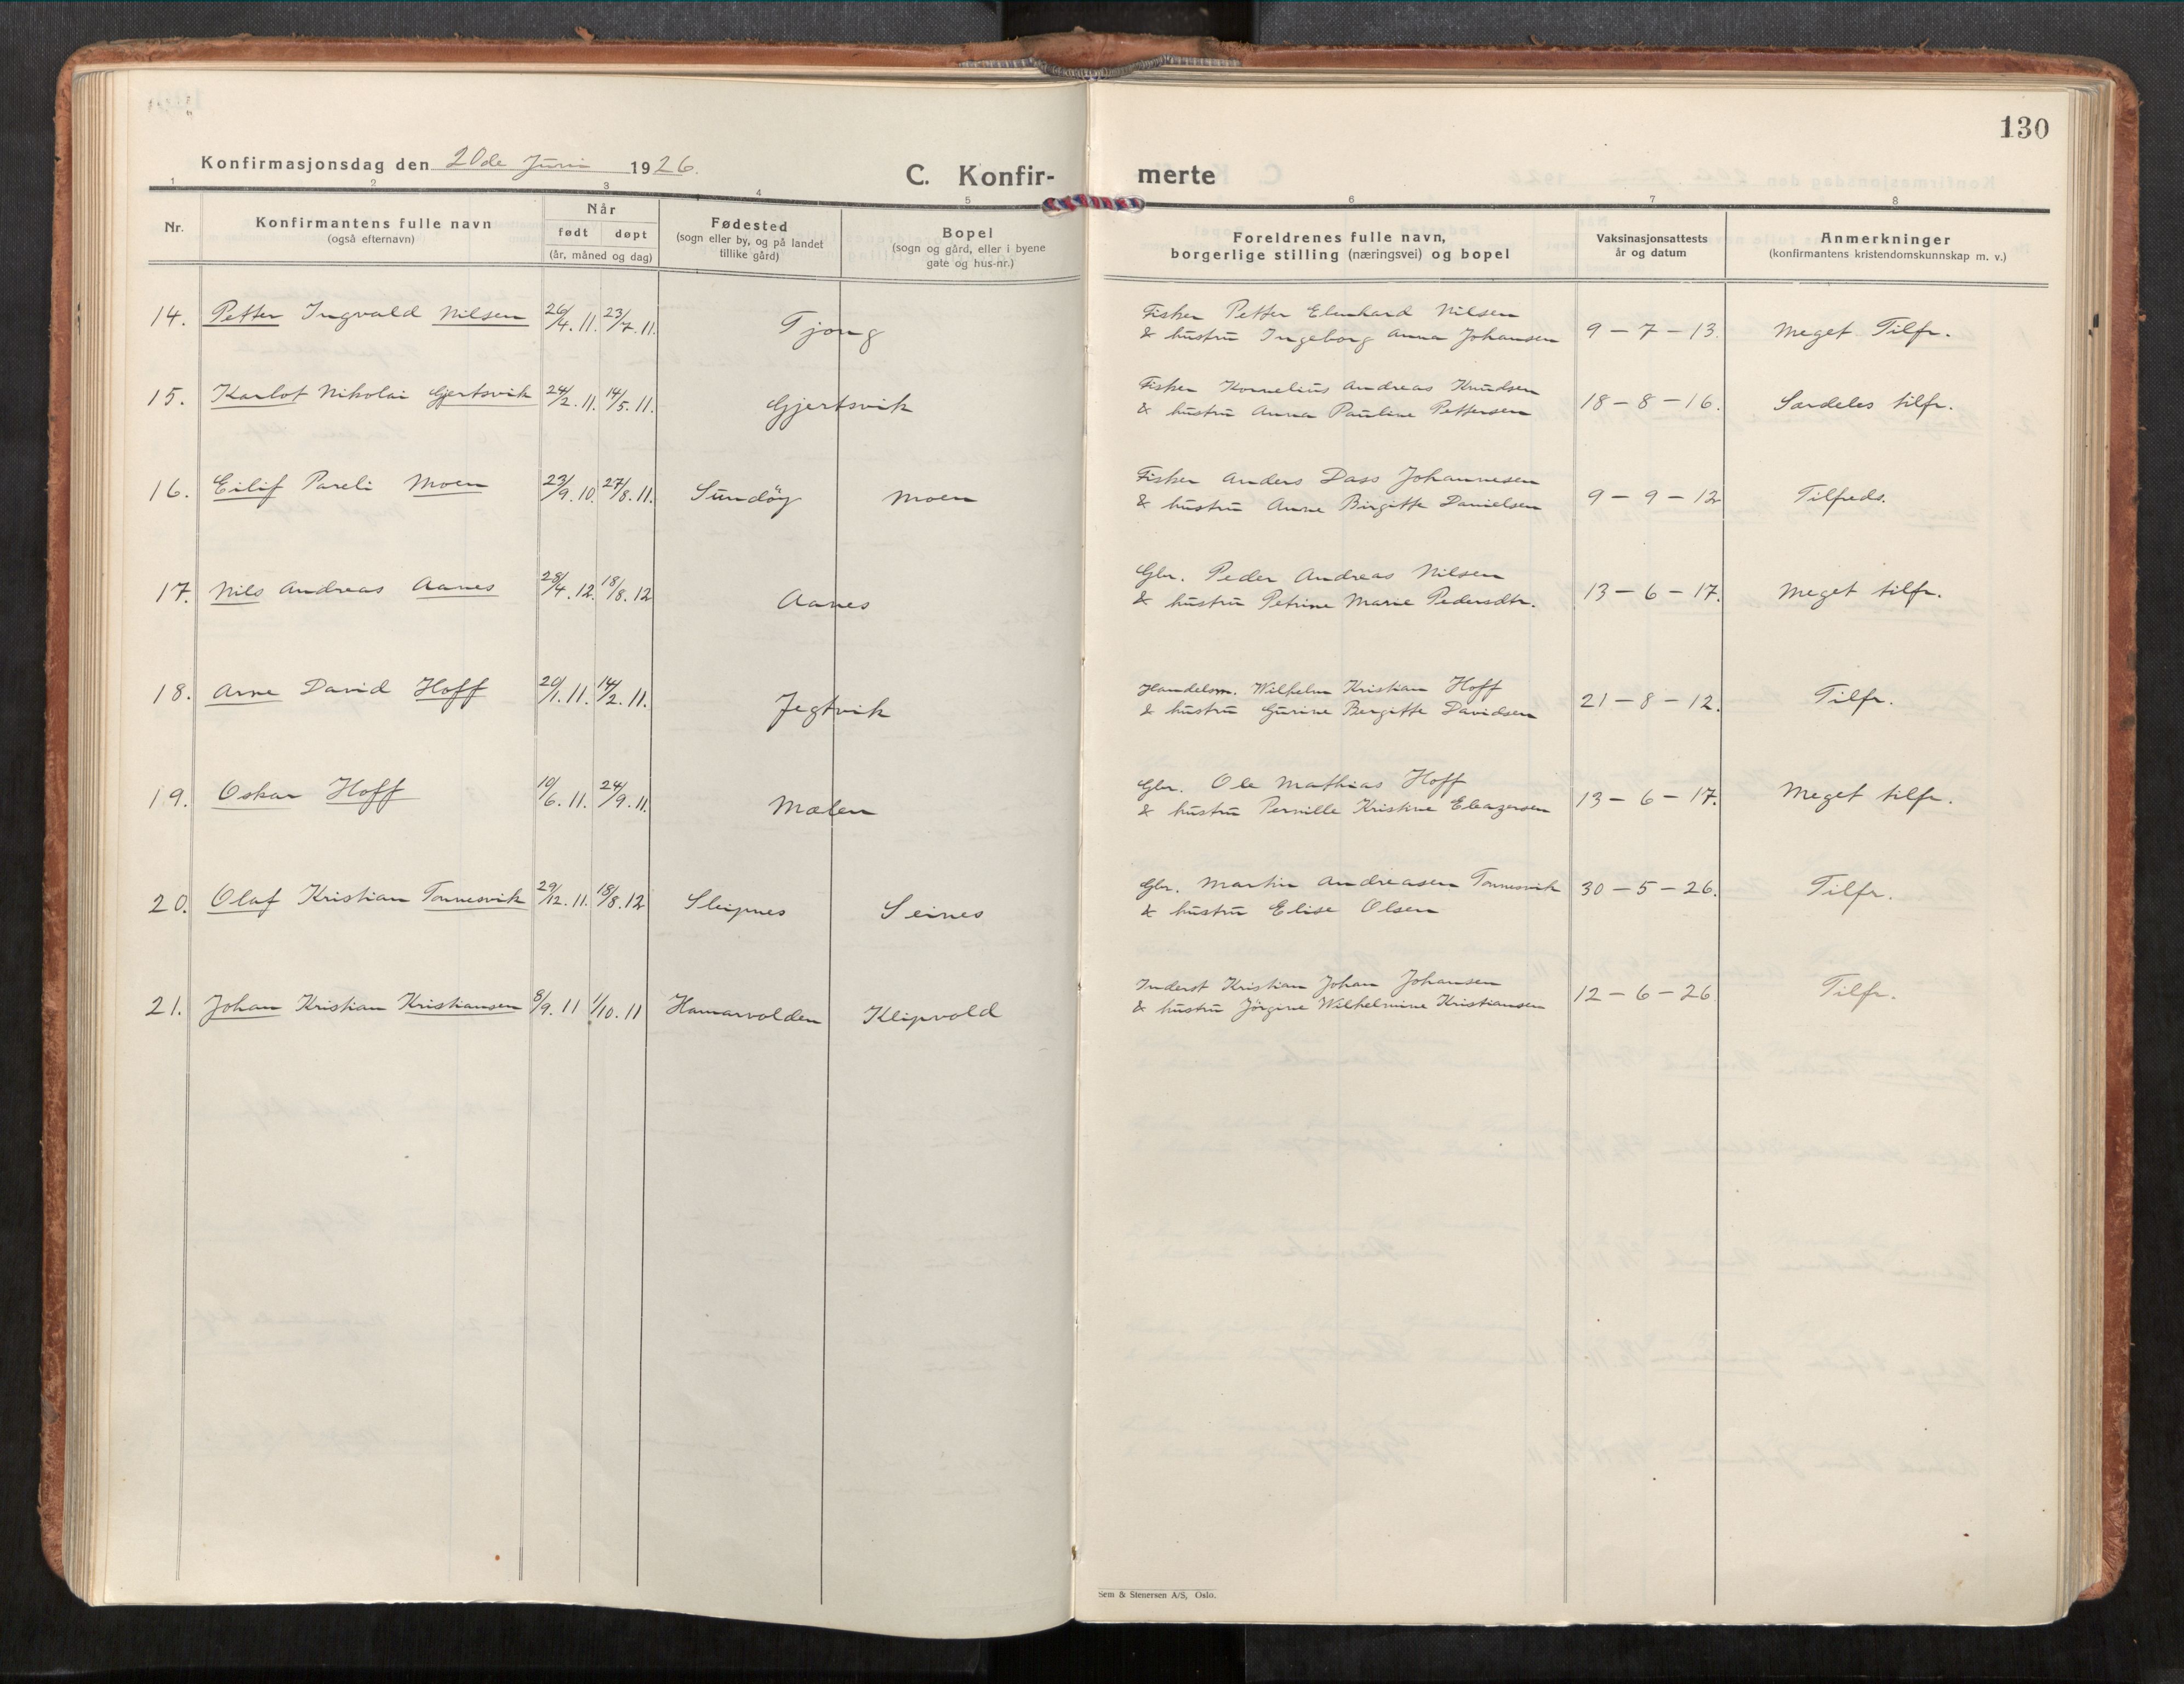 130
Konfirmasjonsdag den 20de Juni 1926.
C. Konfir- merte
1 2 3 4 5 6 7 8
Nr.
Konfirmantens fulle navn
(også efternavn)
Når
født døpt
(år, måned og dag)
Fødested
(sogn eller by, og på landet
tillike gård)
Bopel
(sogn og gård, eller i byene
gate og hus-nr.)
Foreldrenes fulle navn,
borgerlige stilling (næringsvei) og bopel
Vaksinasjonsattests
år og datum
Anmerkninger
(konfirmantens kristendomskunnskap m. v.)
14. Petter Ingvald Nilsen 26/4. 11. 23/7. 11. Tjong
Fisker Petter Elenhard Nilsen
& hustru Ingeborg Anna Johansen 9-7-13. Meget Tilfr.
15. Karlot Nikolai Gjertsvik 24/2. 11. 14/5. 11. Gjertsvik
Fisker Kornelius Andreas Knudsen
& hustru Anna Pauline Pettersen 18-8-16. Særdeles tilfr.
16. Eilif Pareli Moen 23/9. 10. 27/8. 11. Sundöy Moen
Fisker Anders Dass Johannesen
& hustru Anne Birgitte Danielsen 9-9-12 Tilfreds.
17. Nils Andreas Aanes 28/4. 12. 18/8. 12 Aanes
Gbr. Peder Andreas Nilsen
& hustru Petrine Marie Pedersdtr. 13-6-17. Meget tilfr.
18. Arne David Hoff 20/1. 11. 14/2. 11. Jegtvik
Handelsm. Wilhelm Kristian Hoff
& hustru Gurine Bergitte Davidsen 21-8-12. Tilfr.
19. Oskar Hoff 10/6. 11. 24/9. 11. Mælen
Gbr. Ole Mathias Hoff
& hustru Pernille Kristine Eleazersen 13-6-17. Meget tilfr.
20. Olaf Kristian Tonnesvik 29/12. 11. 18/8. 12 Sleipnes Seines
Gbr. Martin Andreasen Tonnesvik 30-5-26. Tilfr.
& hustru Elise Olsen
21. Johan Kristian Kristiansen 8/9. 11 1/10. 11 Hamarvolden Klipvold
Inderst Kristian Johan Johansen
& hustru Jörgine Wilhelmine Kristiansen 12-6-26. Tilfr.
Sem & Stenersen A/S, Oslo.